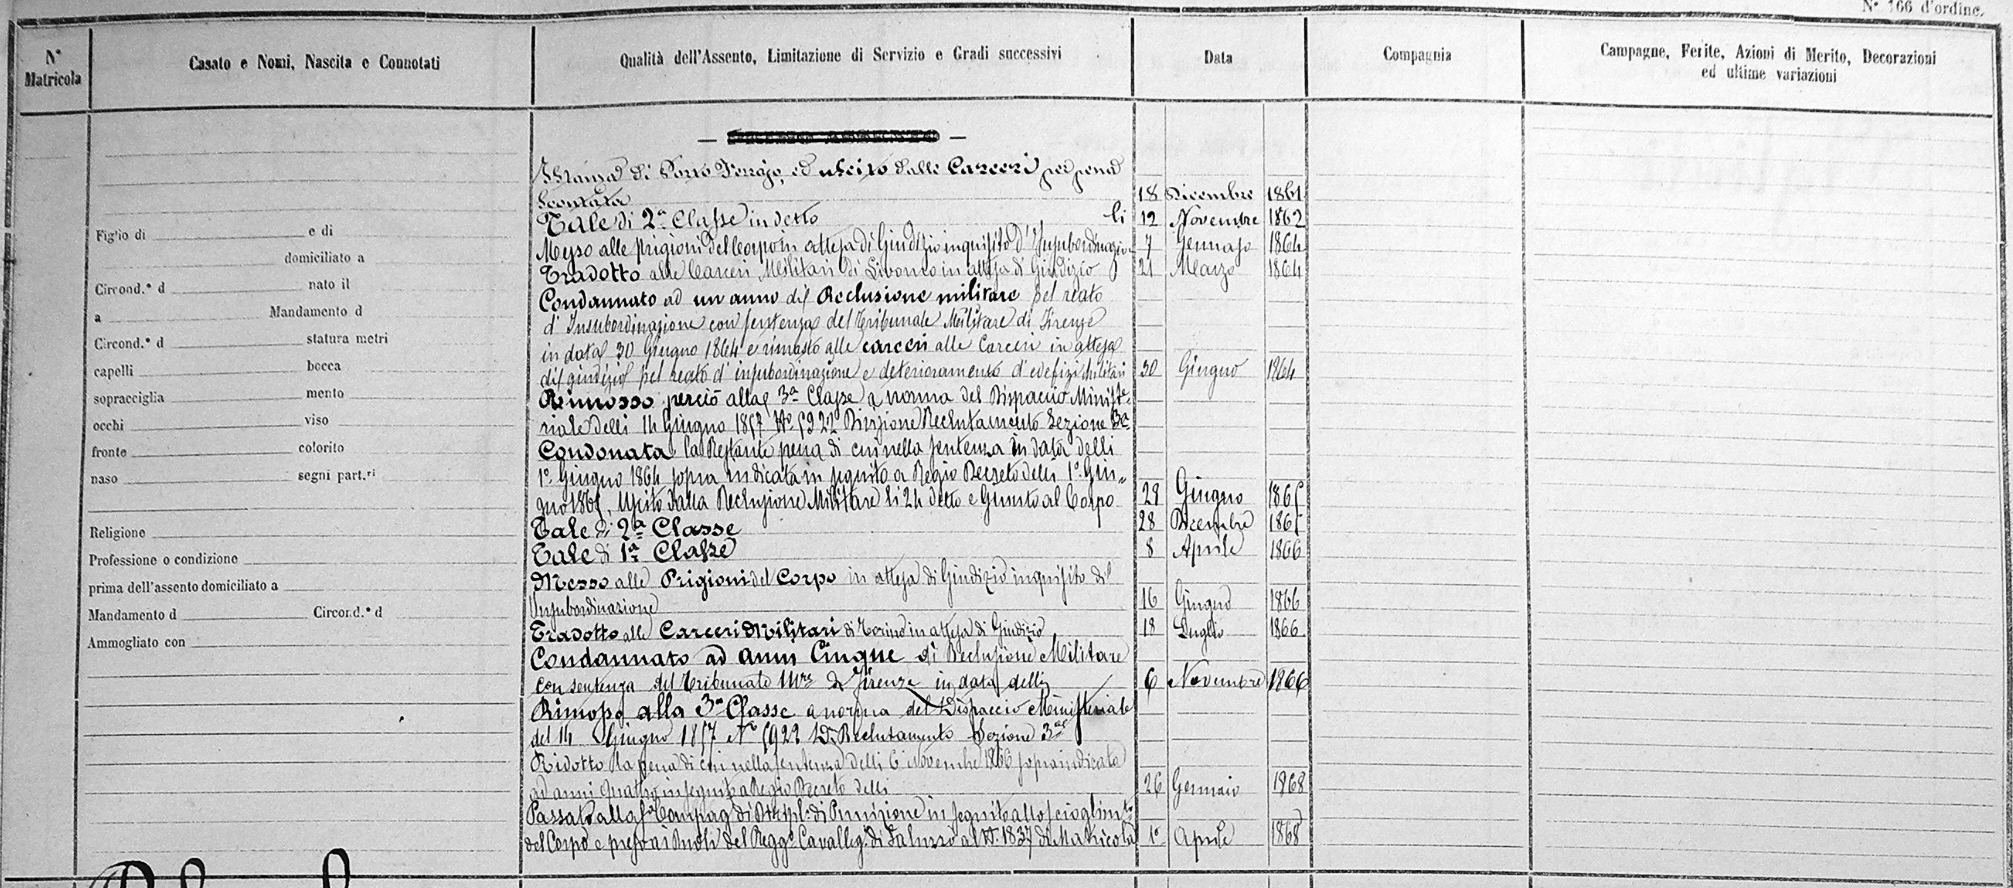 N° 166 d'ordine.
N° Matricola
Casato e Nomi, Nascita e Connotati
Qualità dell'Assento, Limitazione di Servizio e Gradi successivi
Data
Compagnia
Campagne, Ferite, Azioni di Merito, Decorazioni
ed ultime variazioni
Figlio di e di
domiciliato a
Circond.° d nato il
a Mandamento d
Circond.° d statura metri
capelli bocca
sopracciglia mento
occhi viso
fronte colorito
naso segni part.ri
Religione
Professione o condizione
prima dell'assento domiciliato a
Mandamento d Circond.° d
Ammogliato con
Stanza di Porto Ferrajo, ed uscito dalle Carceri per pena
scontata 18 Dicembre 1861
Tale di 2a Classe in detto li 12 Novembre 1862
Messo alle prigioni del corpo in attesa di Giudizio inquisito d'Insubordinazio- 7 Gennajo 1864
Tradotto alle Carceri Militari di Livorno in attesa di Giudizio 21 Marzo 1864
Condannato ad un anno di Reclusione militare pel reato
d'Insubordinazione con sentenza del Tribunale Militare di Firenze
in data 30 Giugno 1864 e rimasto alle carceri alle Carceri in attesa
di giudizio pel reato d'insubordinazione e deterioramento d'edefizi militari 30 Giugno 1864
Rimosso perciò alla 3a Classe a norma del Dispaccio Ministe-
riale delli 14 Giugno 1857 No 5922 Divisione Reclutamento Sezione 3a
Condonata la Restante pena di cui nella sentenza in data delli
1° Giugno 1864 sopra indicata in seguito a Regio Decreto delli 1° Giu-
gno 1865, Uscito dalla Reclusione Militare li 24 detto e Giunto al Corpo 29 Giugno 1865
Tale di 2a Classe 28 Dicembre 1865
Tale di 1a Classe 8 Aprile 1866
Messo alle Prigioni del Corpo in attesa di Giudizio inquisito di
Insubordinazione 16 Giugno 1866
Tradotto alle Carceri Militari di Torino in attesa di Giudizio 18 Luglio 1866
Condannato ad anni Cinque di Reclusione Militare
con sentenza del Tribunale Mre di Firenze in data delli 6 Novembre 1866
Rimosso alla 3a Classe a norma del Dispaccio Ministeriale
del 14 Giugno 1857 No 5922 Dne Reclutamento Sezione 3a
Ridotto la pena di cui nella sentenza delli 6 Novembre 1866 sopraindicata
ad anni quattro in seguito a Regio Decreto delli 26 Gennaio 1868
Passato alla Compag di Discipl. di Punizione in seguito allo scioglimto
del Corpo e preso ai Ruoli del Regg° Cavalleg. di Saluzzo al N. 1837 di Matricola 1° Aprile 1868